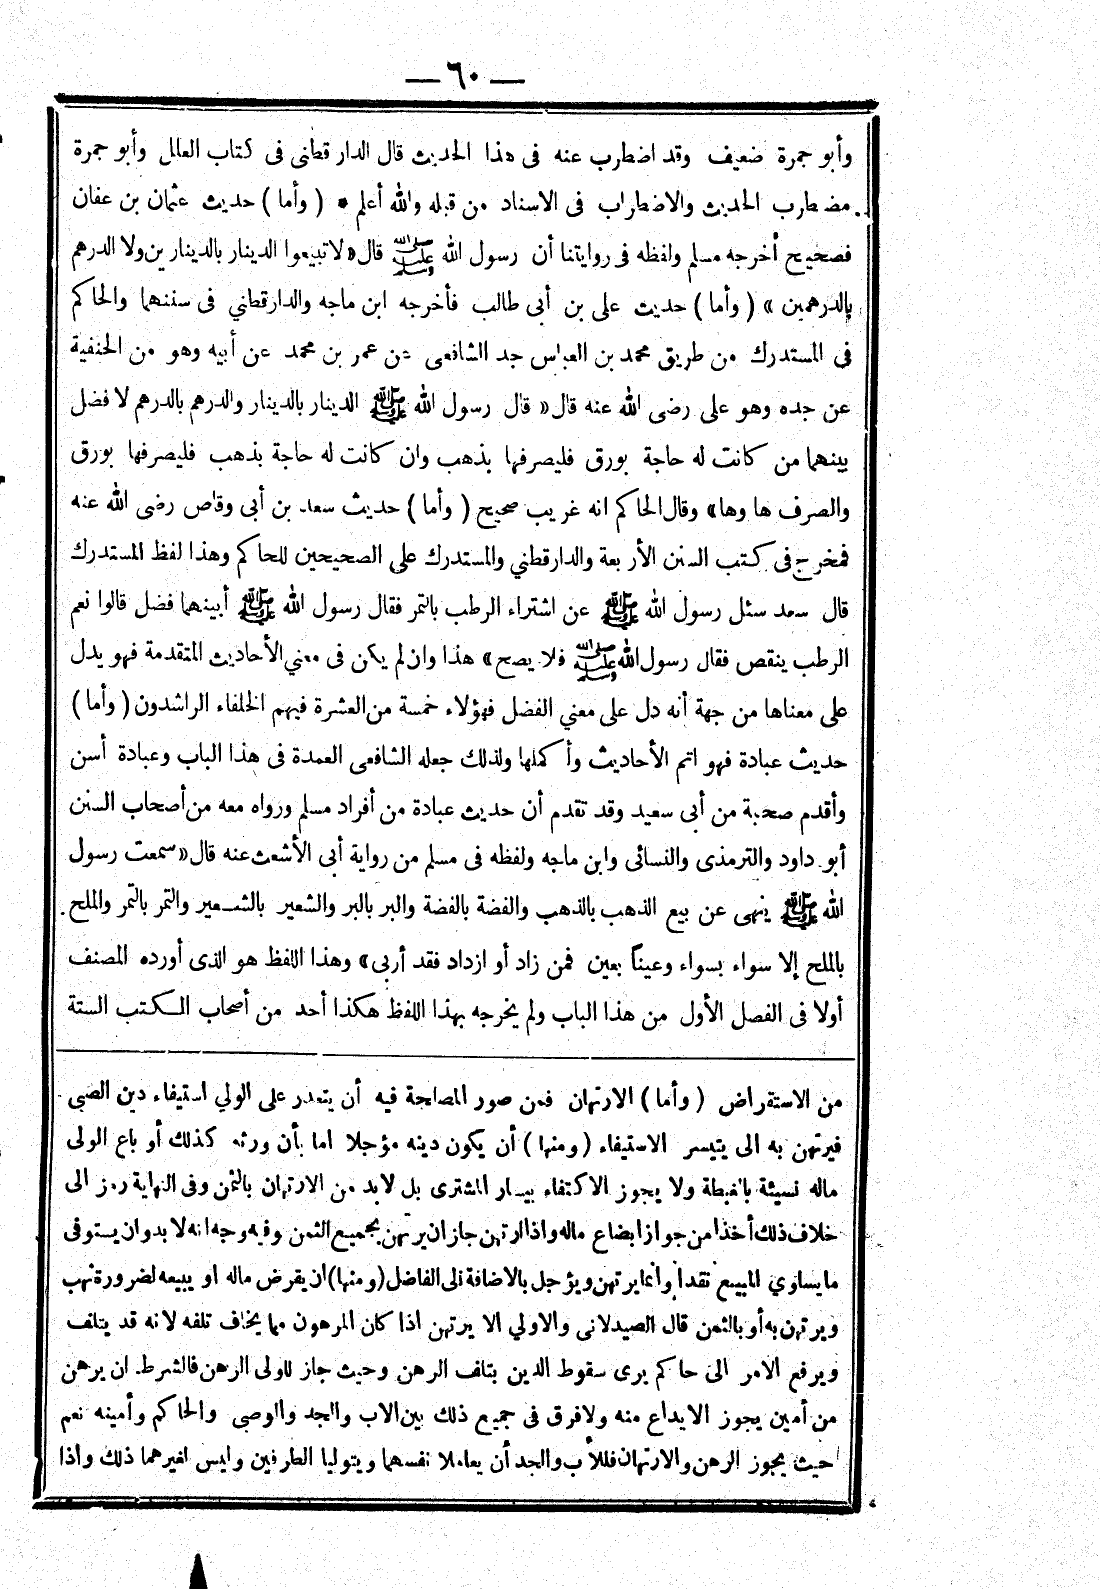 — ٦٠ —
وأبو حمزة ضعيف وقد اضطرب عنه فى هذا الحديث قال الدارقطنى فى كتاب العلل وأبو حمزة
مضطرب الحديث والاضطراب فى الاسناد من قبله والله أعلم * ( وأما ) حديث عثمان بن عفان
فصحيح أخرجه مسلم ولفظه فى روايتنا أن رسول الله ﷺ قال « لا تبيعوا الدينار بالدينارين ولا الدرهم
بالدرهمين » ( وأما ) حديث على بن أبى طالب فأخرجه ابن ماجه والدارقطني فى سننهما والحاكم
فى المستدرك من طريق محمد بن العباس جد الشافعى عن عمر بن محمد عن أبيه وهو من الحنفية
عن جده وهو على رضى الله عنه قال « قال رسول الله ﷺ الدينار بالدينار والدرهم بالدرهم لا فضل
بينهما من كانت له حاجة بورق فليصرفها بذهب وان كانت له حاجة بذهب فليصرفها بورق
والصرف ها وها » وقال الحاكم انه غريب صحيح ( وأما ) حديث سعد بن أبى وقاص رضى الله عنه
فمخرج فى كتب السنن الأربعة والدارقطني والمستدرك على الصحيحين للحاكم وهذا لفظ المستدرك
قال سعد سئل رسول الله ﷺ عن اشتراء الرطب بالتمر فقال رسول الله ﷺ أبينهما فضل قالوا نعم
الرطب ينقص فقال رسول الله ﷺ فلا يصح » هذا وان لم يكن فى معني الأحاديث المتقدمة فهو يدل
على معناها من جهة أنه دل على معني الفضل فهؤلاء خمسة من العشرة فيهم الخلفاء الراشدون ( وأما )
حديث عبادة فهو اتم الأحاديث وأكملها ولذلك جعله الشافعى العمدة فى هذا الباب وعبادة أسن
وأقدم صحبة من أبى سعيد وقد تقدم أن حديث عبادة من أفراد مسلم ورواه معه من أصحاب السنن
أبو داود والترمذى والنسائى وابن ماجه ولفظه فى مسلم من رواية أبى الأشعث عنه قال « سمعت رسول
الله ﷺ ينهى عن بيع الذهب بالذهب والفضة بالفضة والبر بالبر والشعير بالشعير والتمر بالتمر والملح
بالملح إلا سواء بسواء وعيناً بعين فمن زاد أو ازداد فقد أربى » وهذا اللفظ هو الذى أورده المصنف
أولا فى الفصل الأول من هذا الباب ولم يخرجه بهذا اللفظ هكذا أحد من أصحاب الكتب الستة
من الاستقراض ( وأما ) الارتهان فمن صور المصلحة فيه أن يتعذر على الولي استيفاء دين الصبى
فيرتهن به الى يتيسر الاستيفاء ( ومنها ) أن يكون دينه مؤجلا اما بأن ورثه كذلك أو باع الولى
ماله نسيئة بالغبطة ولا يجوز الاكتفاء بيسار المشترى بل لابد من الارتهان بالثمن وفى النهاية رمز الى
خلاف ذلك أخذا من جواز ابضاع ماله واذا ارتهن جاز ان يرتهن بجميع الثمن وفيه وجه انه لابد وان يستوفى
مايساوي المبيع نقداً وانما يرتهن ويؤجل بالاضافة الى الفاضل ( ومنها ) ان يقرض ماله او يبيعه لضرورة نهب
ويرتهن به أو بالثمن قال الصيدلانى والاولي الا يرتهن اذا كان المرهون مما يخاف تلفه لانه قد يتلف
ويرفع الامر الى حاكم يرى سقوط الدين بتلف الرهن وحيث جاز للولى الرهن فالشرط ان يرهن
من أمين يجوز الايداع منه ولا فرق فى جميع ذلك بين الاب والجد والوصى والحاكم وأمينه نعم
حيث يجوز الرهن والارتهان فللأب والجد أن يعاملا نفسهما ويتوليا الطرفين وليس لغيرهما ذلك واذا